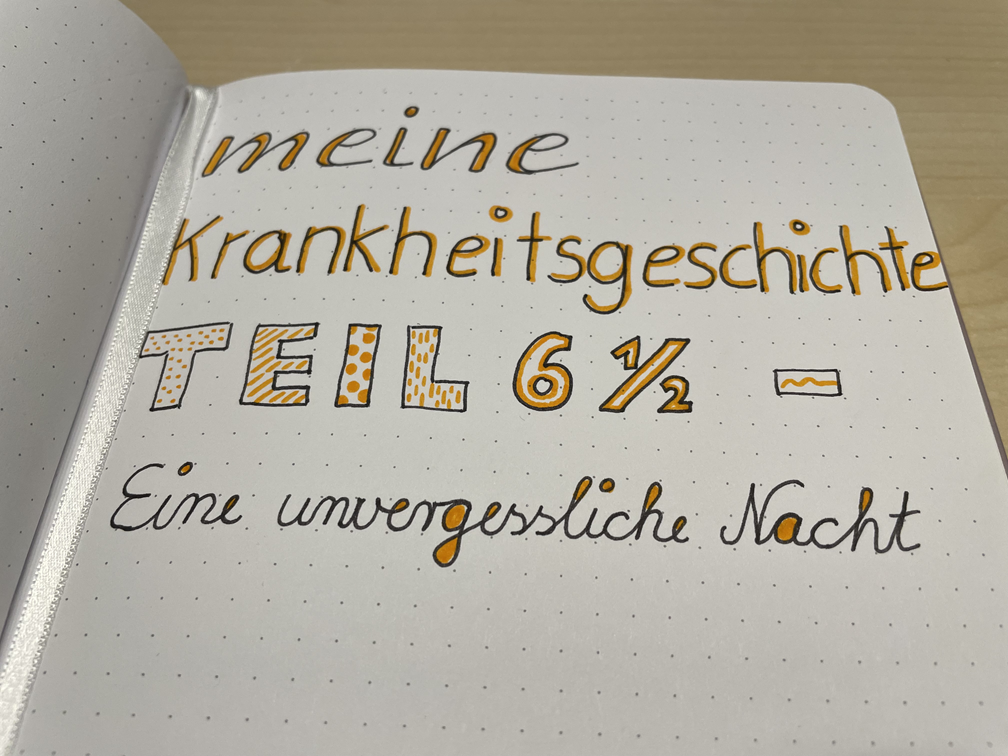 meine
Krankheitsgeschichte
TEIL 6 ½ -
Eine unvergessliche Nacht